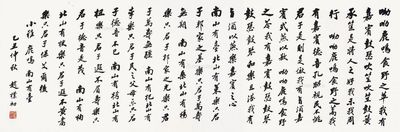 呦呦鹿鳴食野之苹我有
嘉賓鼓瑟吹笙吹笙鼓簧
承筐是將人之好我示我周
行 呦呦鹿鳴食野之蒿我
有嘉賓德音孔昭視民不恌
君子是則是傚我有旨酒嘉
賓式燕以敖 呦呦鹿鳴食
野之芩我有嘉賓鼓瑟鼓琴
鼓瑟鼓琴和樂且湛我有
旨酒以燕樂嘉賓之心
南山有臺北山有萊樂只君
子邦家之基樂只君子萬壽
無期 南山有桑北山有楊
樂只君子邦家之光樂只君
子萬壽無疆 南山有杞
北山有李樂只君子民之父母
樂只君子德音不已
南山有栲北山有杻
樂只君子遐不眉壽樂只君
子德音是茂 南山有枸
北山有楰樂只君子遐不黃耇
小雅 鹿鳴 南山有臺
乙丑仲秋 趙樸初